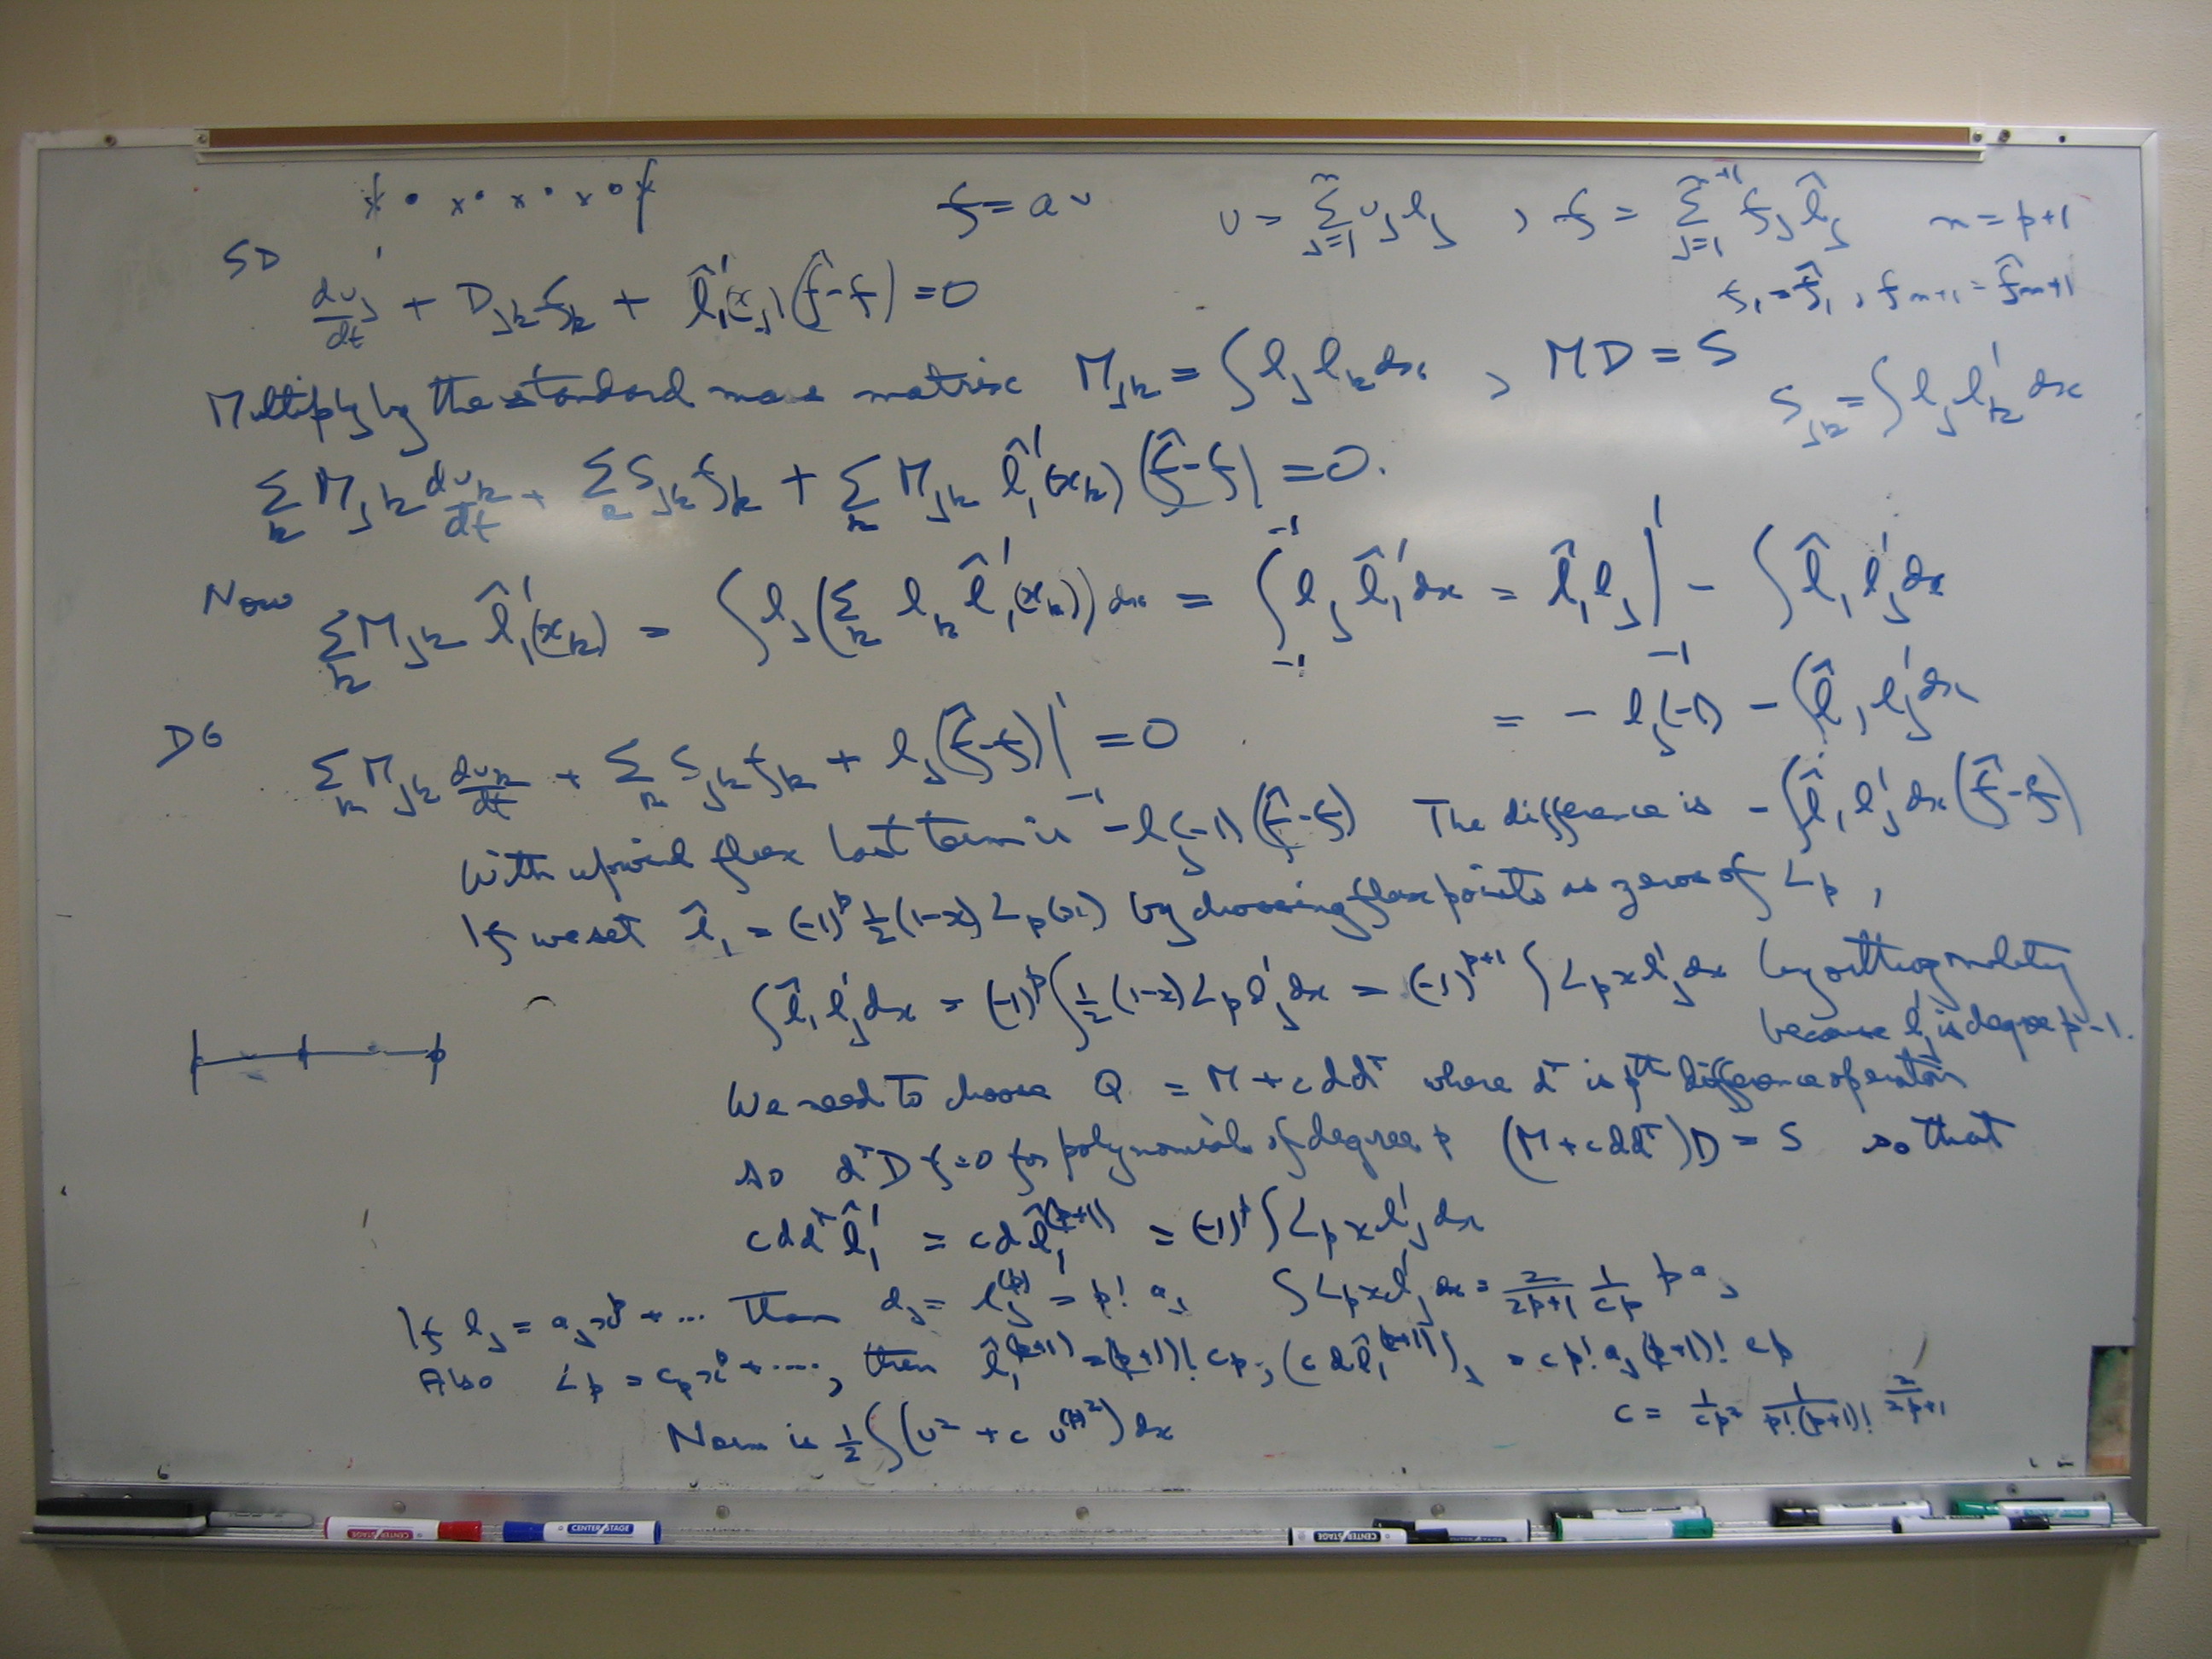 f = au    u = Σ_{j=1}^{n} u_j l_j , f = Σ_{j=1}^{n+1} f_j l̂_j    n = p+1
SD
du_j/dt + D_jk f_k + l̂_1'(x_j)(f̂-f) = 0    f_1 = f̂_1, f_{n+1} = f̂_{n+1}
Multiply by the standard mass matrix M_jk = ∫ l_j l_k dx , MD = S    S_jk = ∫ l_j l_k' dx
Σ_k M_jk du_k/dt + Σ_k S_jk f_k + Σ_k M_jk l̂_1'(x_k) (f̂-f) = 0.
Now Σ_k M_jk l̂_1'(x_k) = ∫ l_j (Σ_k l_k l̂_1'(x_k)) dx = ∫_{-1}^{-1} l_j l̂_1' dx = l̂_1 l_j |_{-1}^{1} - ∫ l̂_1 l_j' dx
= - l_j(-1) - ∫ l̂_1 l_j' dx
DG Σ_k M_jk du_k/dt + Σ_k S_jk f_k + l_j (f̂-f) |_{-1}^{1} = 0
With upwind flux last term is - l_j(-1) (f̂-f)    The difference is - ∫ l̂_1 l_j' dx (f̂-f)
If we set l̂_1 = (-1)^p 1/2 (1-x) L_p(x) by choosing flux points as zeros of L_p,
∫ l̂_1 l_j' dx = (-1)^p ∫ 1/2 (1-x) L_p l_j' dx = (-1)^{p+1} ∫ L_p x l_j' dx by orthogonality
because l_j' is degree p-1.
We need to choose Q = M + c d d^T where d^T is pth difference operator
so d^T D f = 0 for polynomials of degree p (M + c d d^T) D = S so that
c d d^T l̂_1' = c d l̂_1^{(p+1)} = (-1)^p ∫ L_p x l_j' dx
If l_j = a_j x^p + ... then d_j = l_j^{(p)} = p! a_j    ∫ L_p x l_j' dx = 2/(2p+1) 1/c_p p a_j
Also L_p = c_p x^p + ...., then l̂_1^{(p+1)} = (p+1)! c_p ; (c d l̂_1^{(p+1)})_j = c p! a_j (p+1)! c_p
Norm is 1/2 ∫ (u² + c u^{(p)2}) dx    c = 1/c_p² 1/(p!(p+1)!) 2/(2p+1)
CENTER STAGE
CENTER STAGE
CENTER STAGE